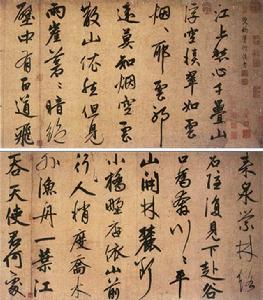 江上愁心千疊山
浮空積翠如雲
烟山耶雲耶
遠莫知烟空雲
散山依然但見
兩崖蒼々暗絕
壑中有百道飛
來泉縈林絡
石隱復見下赴谷
口為奔川々平
山開林麓斷
小橋野店依山前
行人稍度喬木
外漁舟一葉江
吞天使君何處